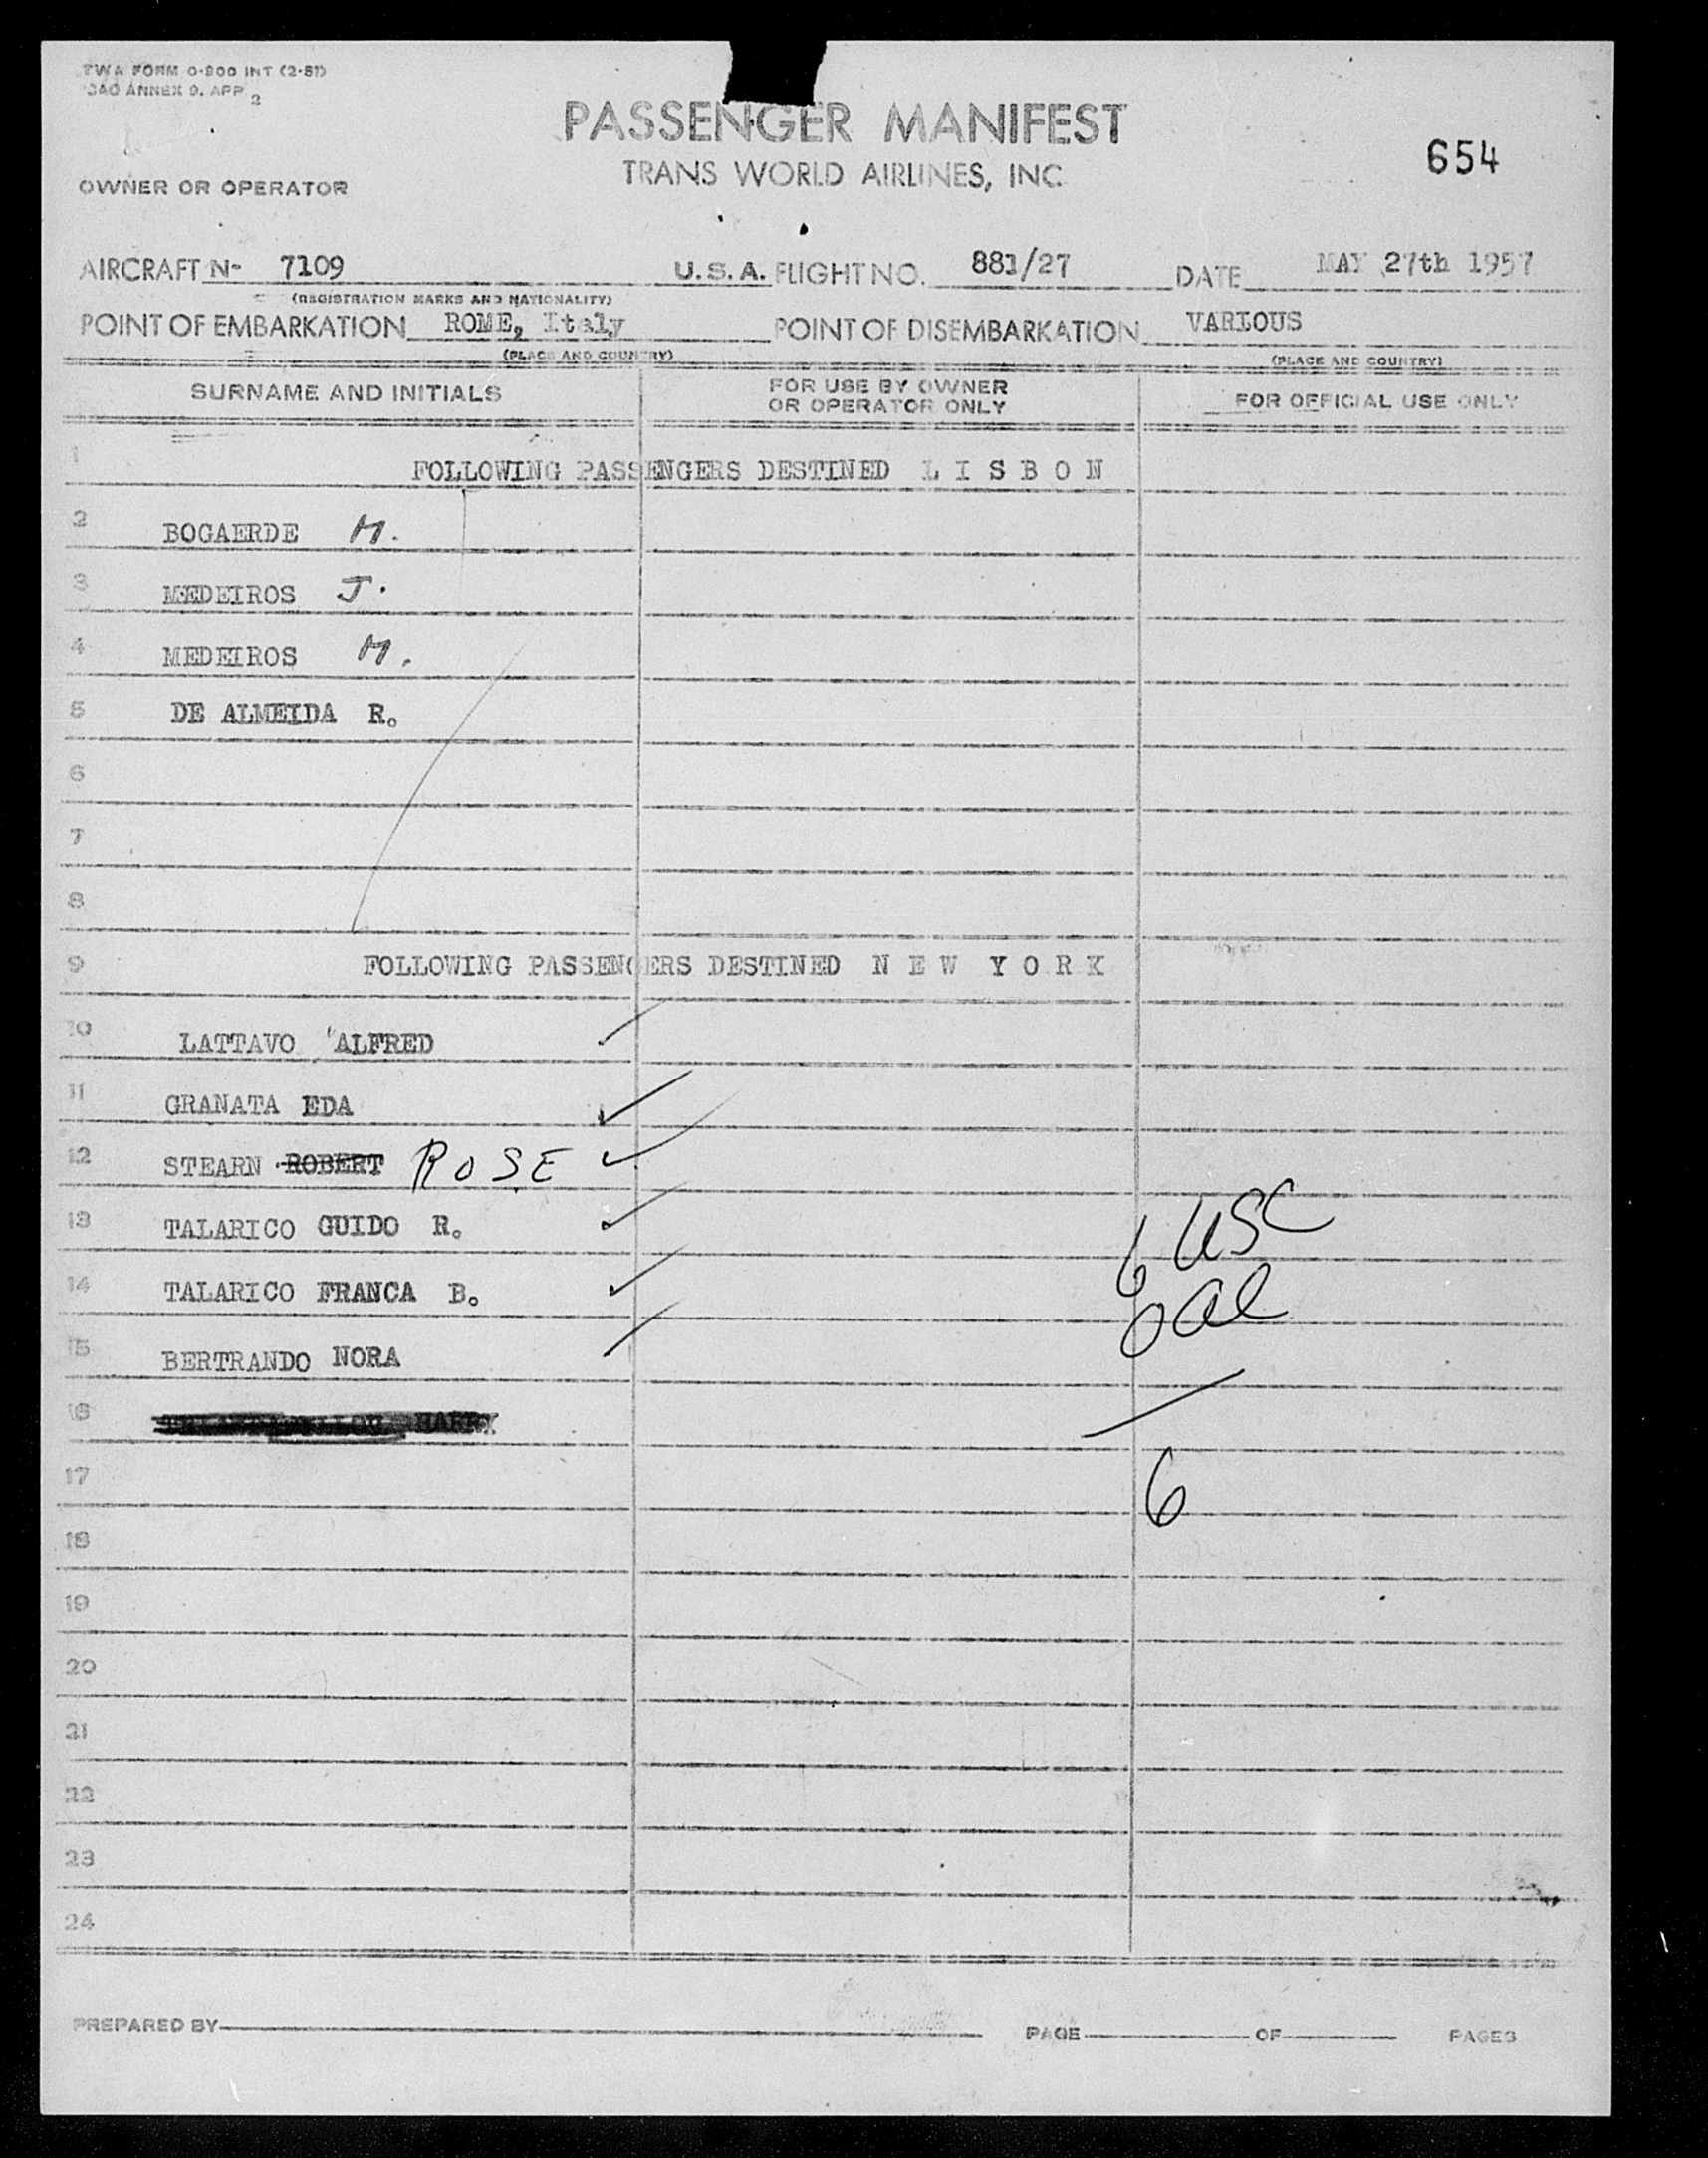 TWA FORM O-800 INT (2-51)
ICAO ANNEX 9. APP 2
PASSENGER MANIFEST
654
TRANS WORLD AIRLINES, INC
OWNER OR OPERATOR
AIRCRAFT N- 7109 U.S.A. FLIGHT NO. 881/27 DATE MAY 27th 1957
(REGISTRATION MARKS AND NATIONALITY)
POINT OF EMBARKATION ROME, Italy POINT OF DISEMBARKATION VARIOUS
(PLACE AND COUNTRY) (PLACE AND COUNTRY)
SURNAME AND INITIALS FOR USE BY OWNER OR OPERATOR ONLY FOR OFFICIAL USE ONLY
1 FOLLOWING PASSENGERS DESTINED L I S B O N
2 BOGAERDE M.
3 MEDEIROS J.
4 MEDEIROS M.
5 DE ALMEIDA R.
6
7
8
9 FOLLOWING PASSENGERS DESTINED N E W Y O R K
10 LATTAVO ALFRED
11 GRANATA EDA
12 STEARN ROBERT ROSE
13 TALARICO GUIDO R. 6 USC
14 TALARICO FRANCA B. 0 al
15 BERTRANDO NORA
16 HARRY
17 6
18
19
20
21
22
23
24
PREPARED BY PAGE OF PAGES